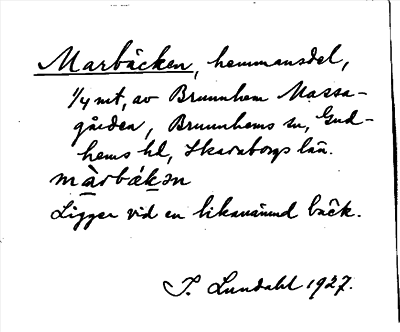 Marbäcken, hemmansdel,
1/4 mt, av Brunnhem Massa-
gården, Brunnhems sn, Gud-
hems hd, Skaraborgs län.
màrbákən
Ligger vid en likanämnd bäck.
J. Lundahl 1927.